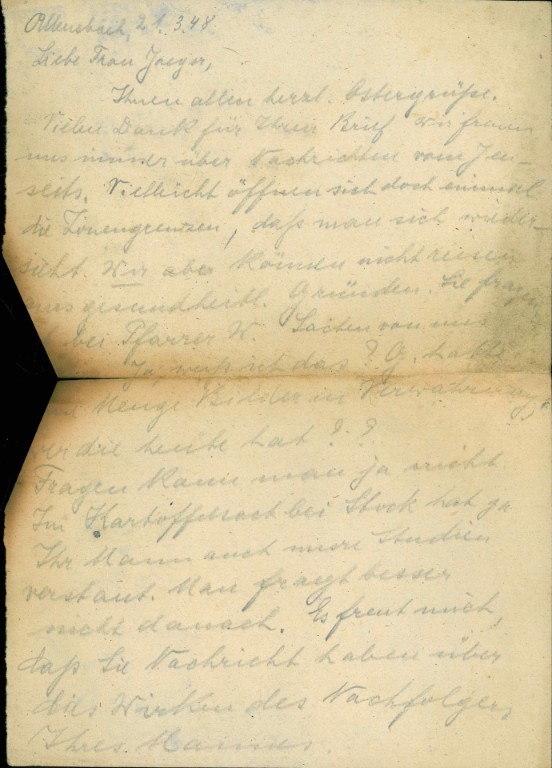 Allensbach, 21.3.48
Liebe Frau Jaeger,
Ihnen allen herzl. Ostergrüße.
Vielen Dank für Ihren Brief. Wir freuen
uns immer über Nachrichten vom Jen-
seits. Vielleicht öffnen sich doch einmal
die Zonengrenzen, daß man sich wieder-
sieht. Wir aber können nicht reisen
aus gesundheitl. Gründen. Sie fragen,
bei Pfarrer W. Sachen von uns
Ja, weiß ich das? G. hatte
Menge Bilder in Verwahrung,
wer die heute hat??
Fragen kann man ja nicht.
Im Kartoffelsack bei Stock hat ja
Ihr Mann auch unsre Studien
verstaut. Man fragt besser
nicht danach. Es freut mich,
daß Sie Nachricht haben über
das Wirken des Nachfolgers
Ihres Mannes.